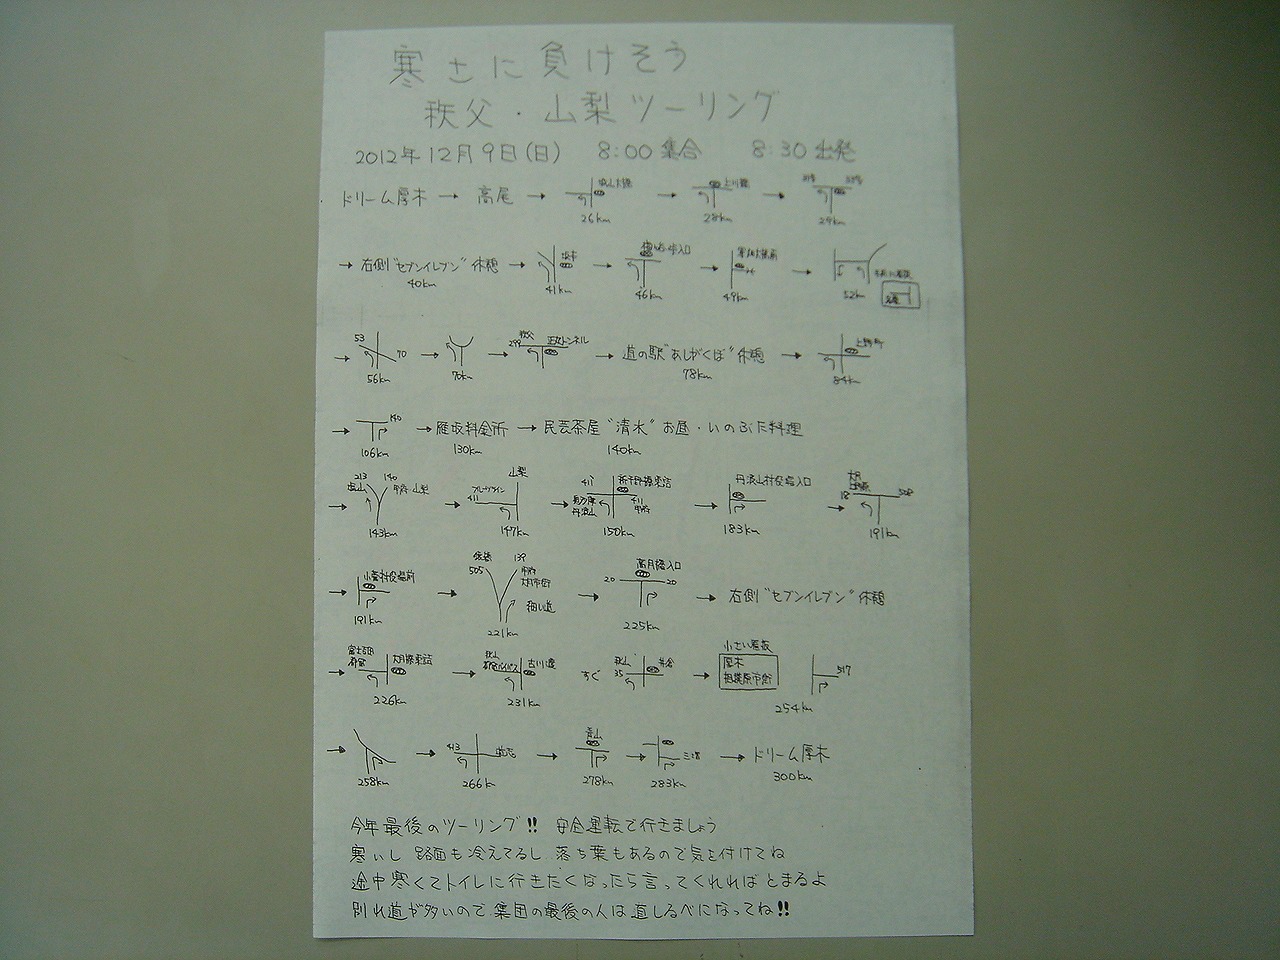 寒さに負けそう
秩父・山梨ツーリング
2012年12月9日(日) 8:00集合 8:30出発
ドリーム厚木 → 高尾 → 26km → 上川橋 28km → 29km
→ 右側"セブンイレブン"休憩 40km → 41km → 46km → 49km → 52km
→ 53 70 56km → 70km → 秩父 299 正丸トンネル → 道の駅"あしがくぼ"休憩 78km → 上野町 84km
→ 140 106km → 雁坂料金所 130km → 民芸茶屋"清水"お昼・いのぶた料理 140km
→ 213 塩山 140 甲府 山梨 143km → 山梨 フルーツライン 411 147km → 411 奥多摩 丹波山 411 甲府 150km → 丹波山村役場入口 183km → 18 191km
→ 小菅村役場前 191km → 505 139 甲府 大月市街 細い道 221km → 高月橋入口 20 20 225km → 右側"セブンイレブン"休憩
→ 富士吉田 都留 大月橋東詰 226km → 秋山 都留バイパス 古川渡 231km すぐ 秋山 35 → 小さい看板 厚木 相模原市街 517 254km
→ 258km → 413 266km → 青山 278km → 283km → ドリーム厚木 300km
今年最後のツーリング!! 安全運転で行きましょう
寒いし 路面も冷えてるし 落ち葉もあるので気を付けてね
途中寒くてトイレに行きたくなったら言ってくれればとまるよ
別れ道が多いので 集団の最後の人は道しるべになってね!!